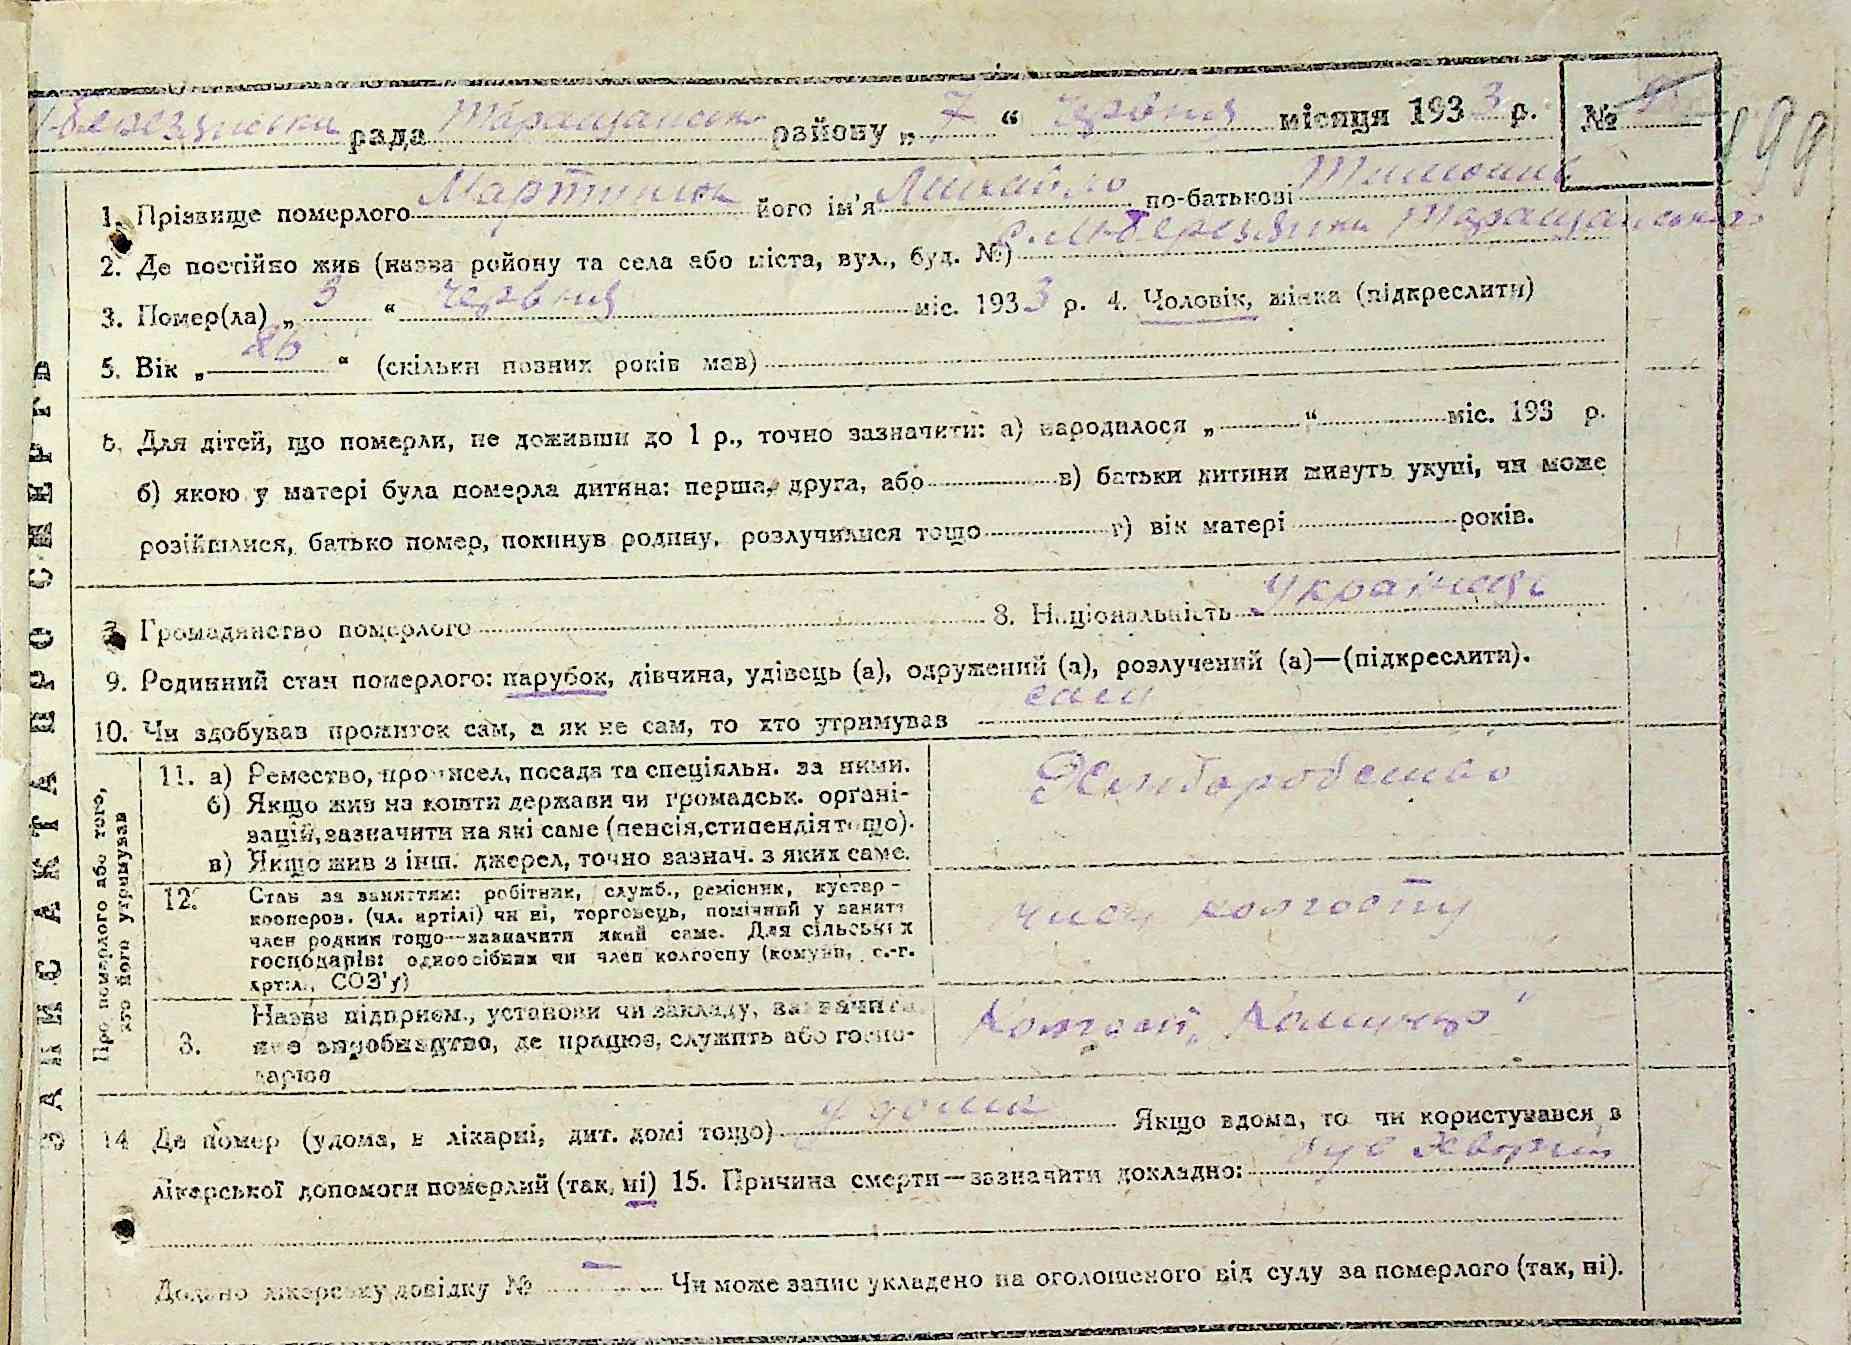 рада Таращанськ району „ 7 “ червня місяця 1933 р. №
199
1. Прізвище померлого Мартинюк його ім'я Михайло по-батькові
2. Де постійно жив (назва району та села або міста, вул., буд. №) с. Лук'яновка Таращанського
3. Помер(ла) „ 3 “ червня міс. 1933 р. 4. Чоловік, жінка (підкреслити)
5. Вік „ “ (скільки повних років мав)
6. Для дітей, що померли, не доживши до 1 р., точно зазначити: а) народилося „ “ міс. 193 р.
б) якою у матері була померла дитина: перша, друга, або в) батьки дитини живуть укупі, чи може
розійшлися, батько помер, покинув родину, розлучилися тощо г) вік матері років.
7. Громадянство померлого 8. Національність Українець
9. Родинний стан померлого: парубок, дівчина, удівець (а), одружений (а), розлучений (а)—(підкреслити).
10. Чи здобував прожиток сам, а як не сам, то хто утримував сам
ЗАПИС АКТА ПРО СМЕРТЬ
Про померлого або того, хто його утримував
11. а) Ремество, промисел, посада та спеціяльн. за ними.
б) Якщо жив на кошти держави чи громадськ. органі-
зацій, зазначити на які саме (пенсія, стипендія тощо).
в) Якщо жив з інш. джерел, точно зазнач. з яких саме.
Хліборобство
12. Стан за заняттям: робітник, служб., ремісник, кустар-
кооперов. (чл. артілі) чи ні, торговець, помічний у занятт
член родини тощо—зазначити який саме. Для сільських
господарів: одноосібник чи член колгоспу (комуни, с.-г.
артіл., СОЗ'у)
член колгоспу
3. Назва підприєм., установи чи закладу, зазначити
яке виробництво, де працює, служить або госпо-
дарює
Колгосп „
14 Де помер (удома, в лікарні, дит. домі тощо) удома Якщо вдома, то чи користувався в
лікарської допомоги померлий (так, ні) 15. Причина смерти—зазначити докладно: був хворий
Додано лікарську довідку № — Чи може запис укладено на оголошеного від суду за померлого (так, ні).